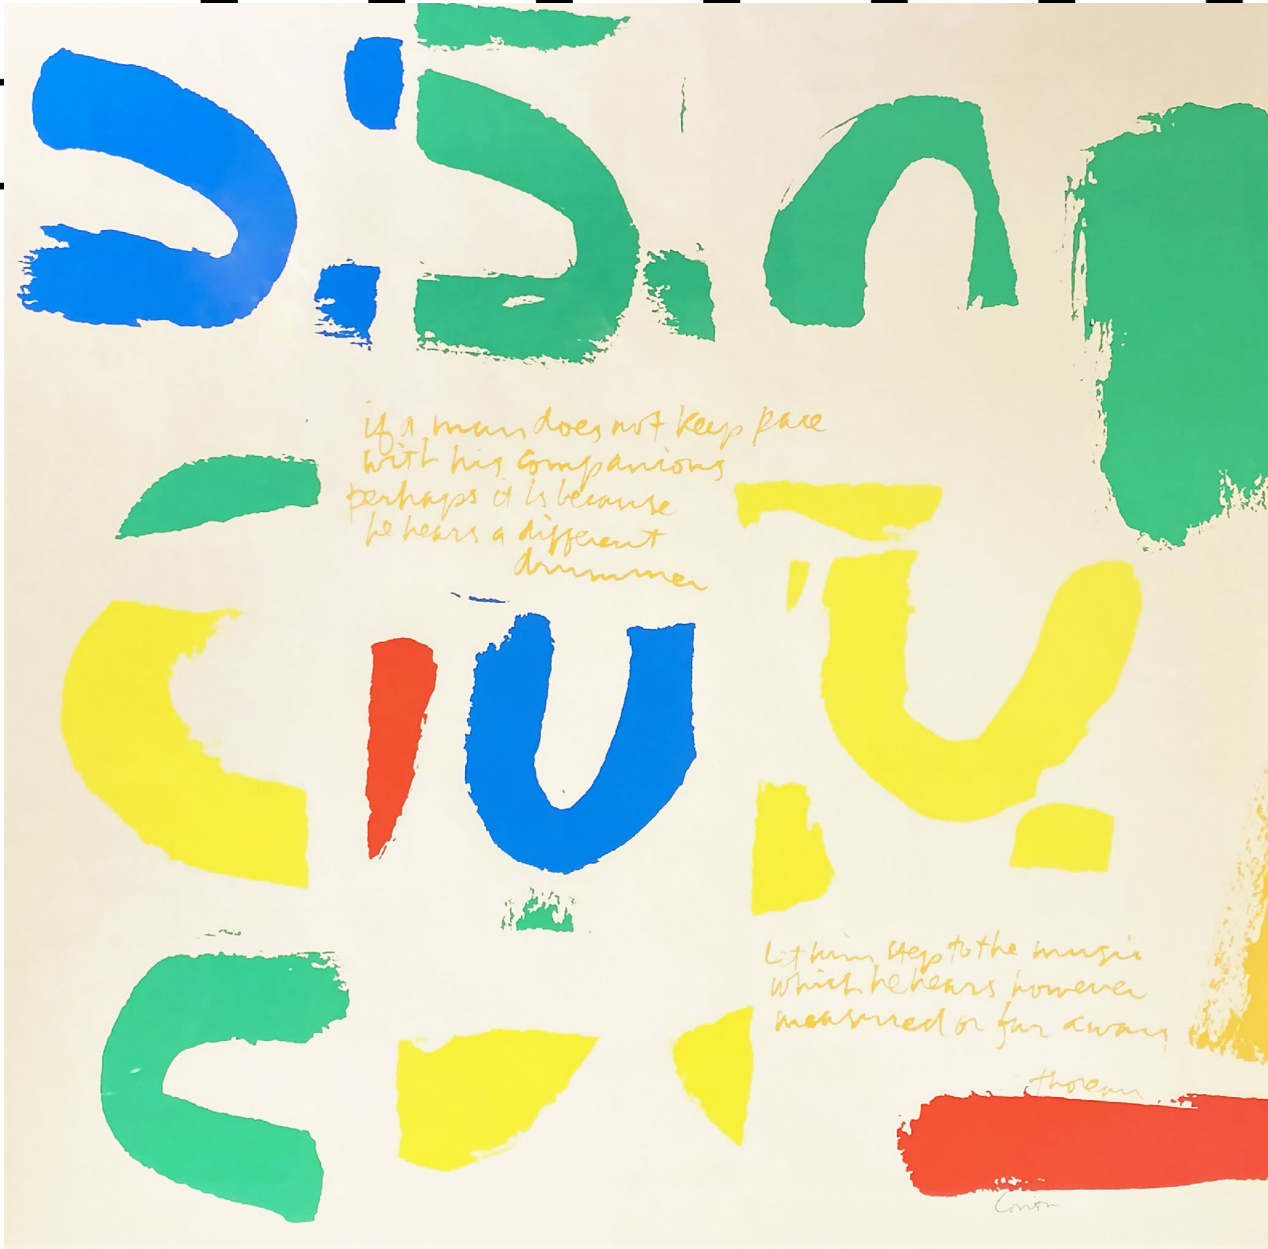 if a man does not keep pace
with his companions
perhaps it is because
he hears a different
drummer
Let him step to the music
which he hears however
measured or far away
thoreau
Corita